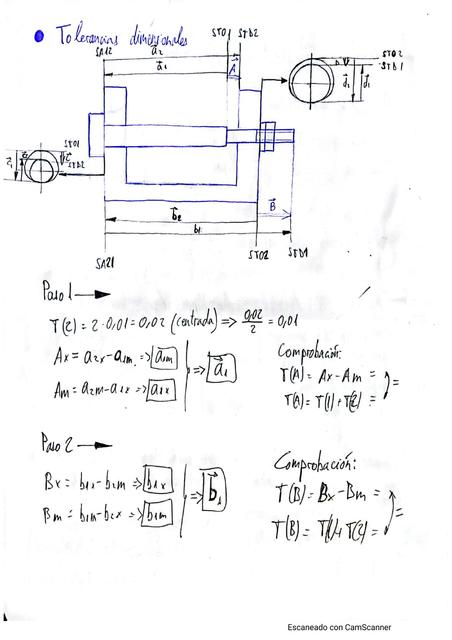 • Tolerancias dimensionales
STO1 STB2
SA12
a2
a1
A
STO2
STB1
V
d2 d1
STO1
STB2
b2
B
b1
SA21
STO2 STB1
Paso 1 →
T(2) = 2·0,01 = 0,02 (centrada) => 0,02/2 = 0,01
Ax = a2x - a1m => a1m
Am = a2m - a1x => a1x
=> a1
Comprobación:
T(A) = Ax - Am =
T(A) = T(1) + T(2) =
=
Paso 2 →
Bx = b1x - b2m => b1x
Bm = b1m - b2x => b1m
=> b1
Comprobación:
T(B) = Bx - Bm =
T(B) = T(1) + T(2) =
=
Escaneado con CamScanner